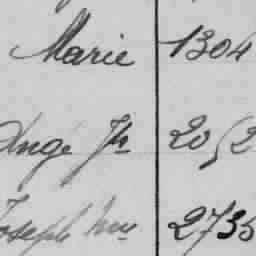 Marie 1304
Ange Jh 2052
Joseph Mie 2735